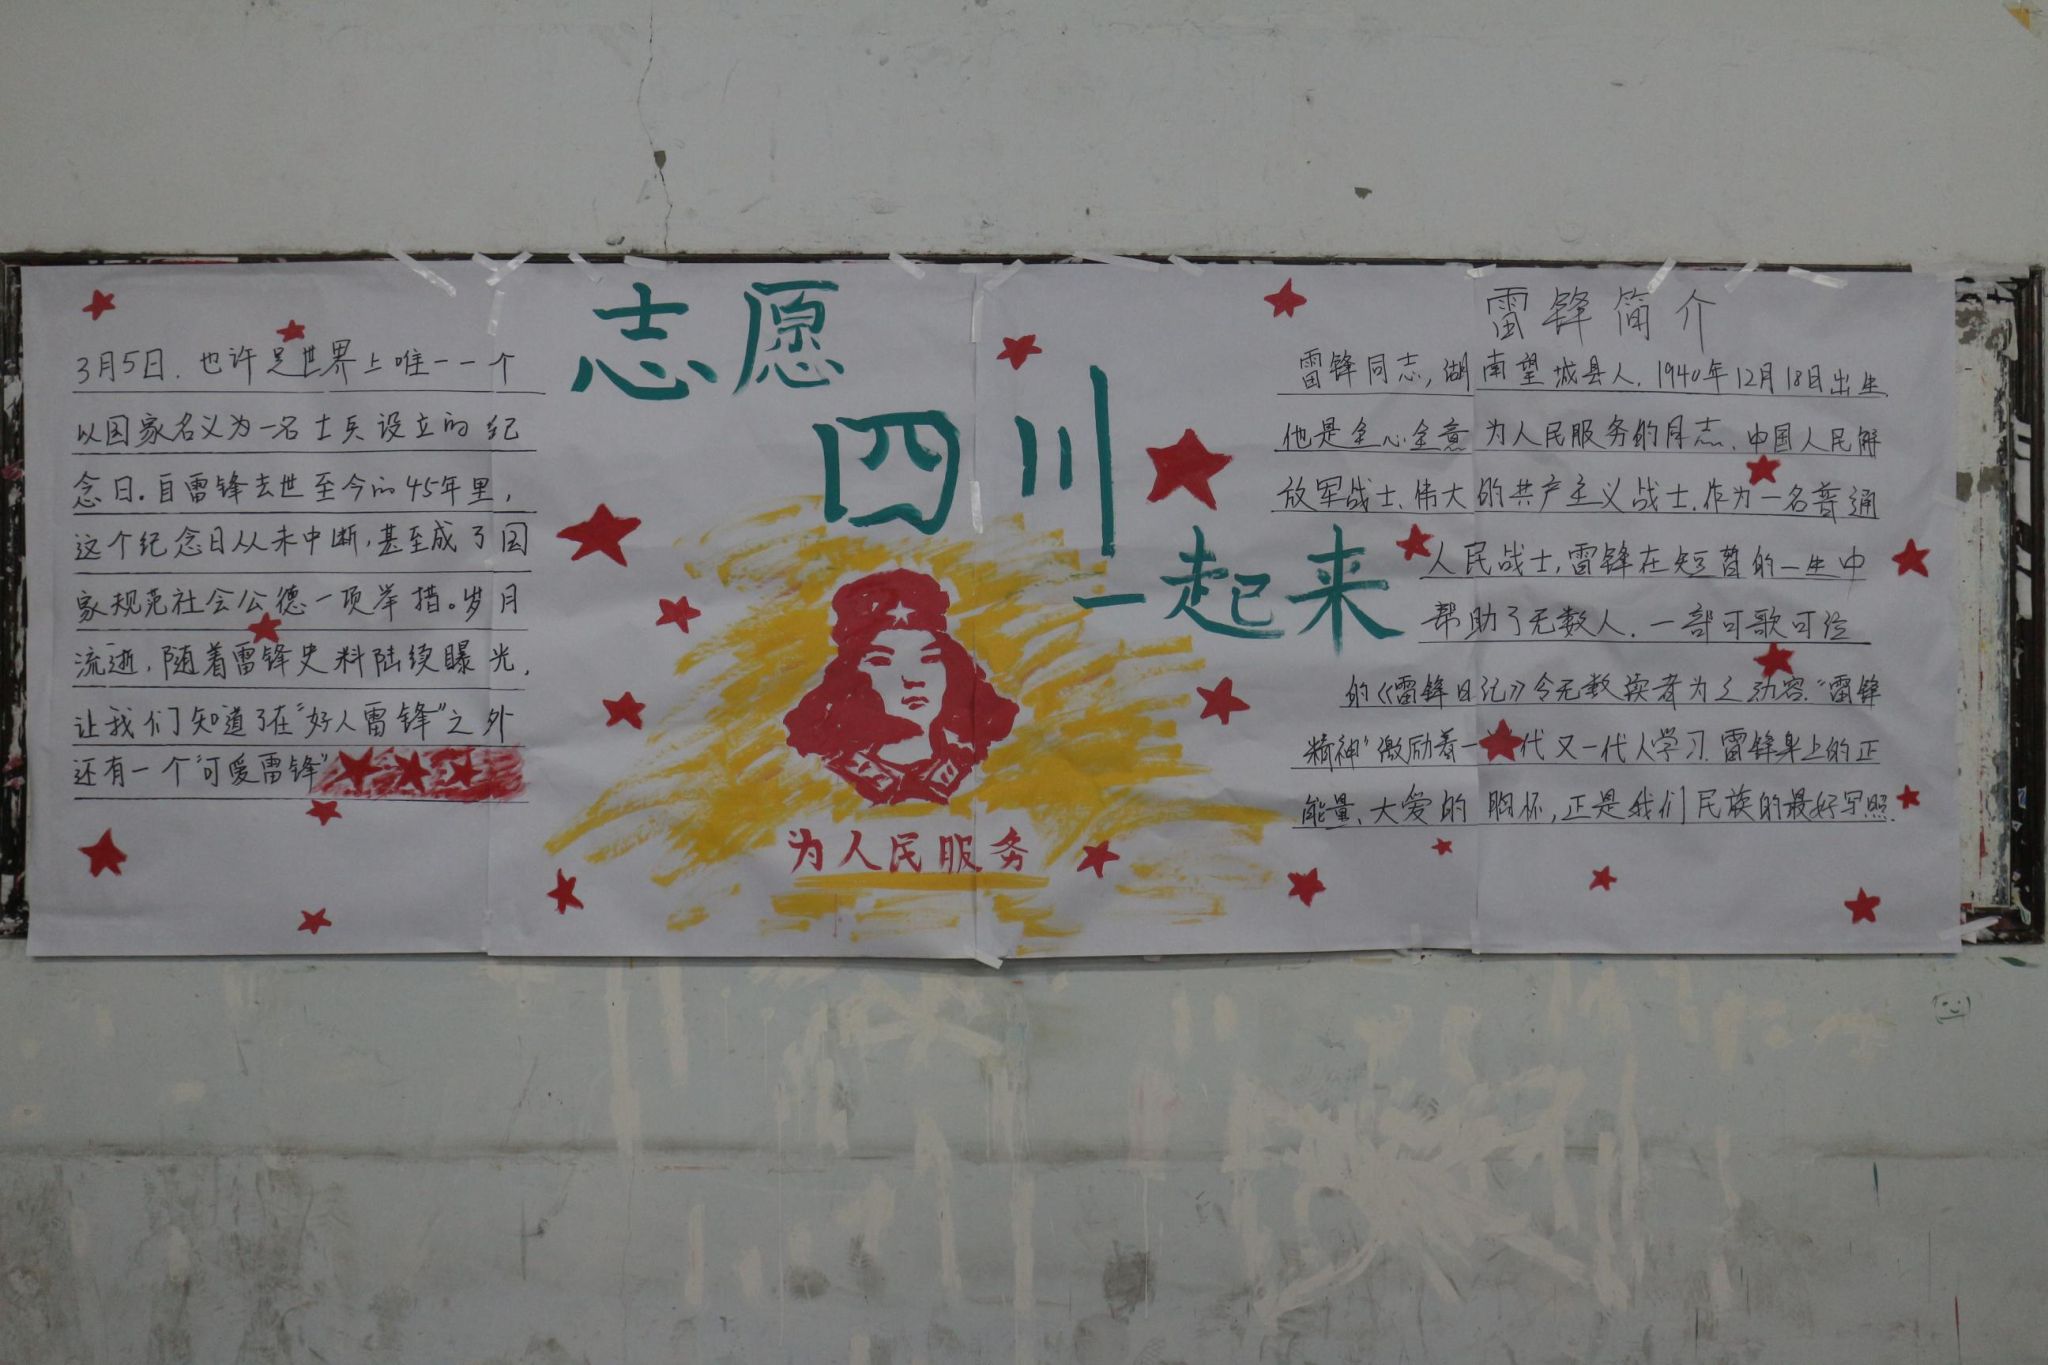 志愿
四川
一起来
3月5日,也许是世界上唯一一个
以国家名义为一名士兵设立的纪
念日.自雷锋去世至今的45年里,
这个纪念日从未中断,甚至成了国
家规范社会公德一项举措。岁月
流逝,随着雷锋史料陆续曝光,
让我们知道了在"好人雷锋"之外
还有一个"可爱雷锋"
为人民服务
雷锋简介
雷锋同志,湖南望城县人.1940年12月18日出生.
他是全心全意为人民服务的同志.中国人民解
放军战士.伟大的共产主义战士.作为一名普通
人民战士,雷锋在短暂的一生中
帮助了无数人.一部可歌可泣
的《雷锋日记》令无数读者为之动容."雷锋
精神"激励着一代又一代人学习.雷锋身上的正
能量、大爱的胸怀,正是我们民族的最好写照.